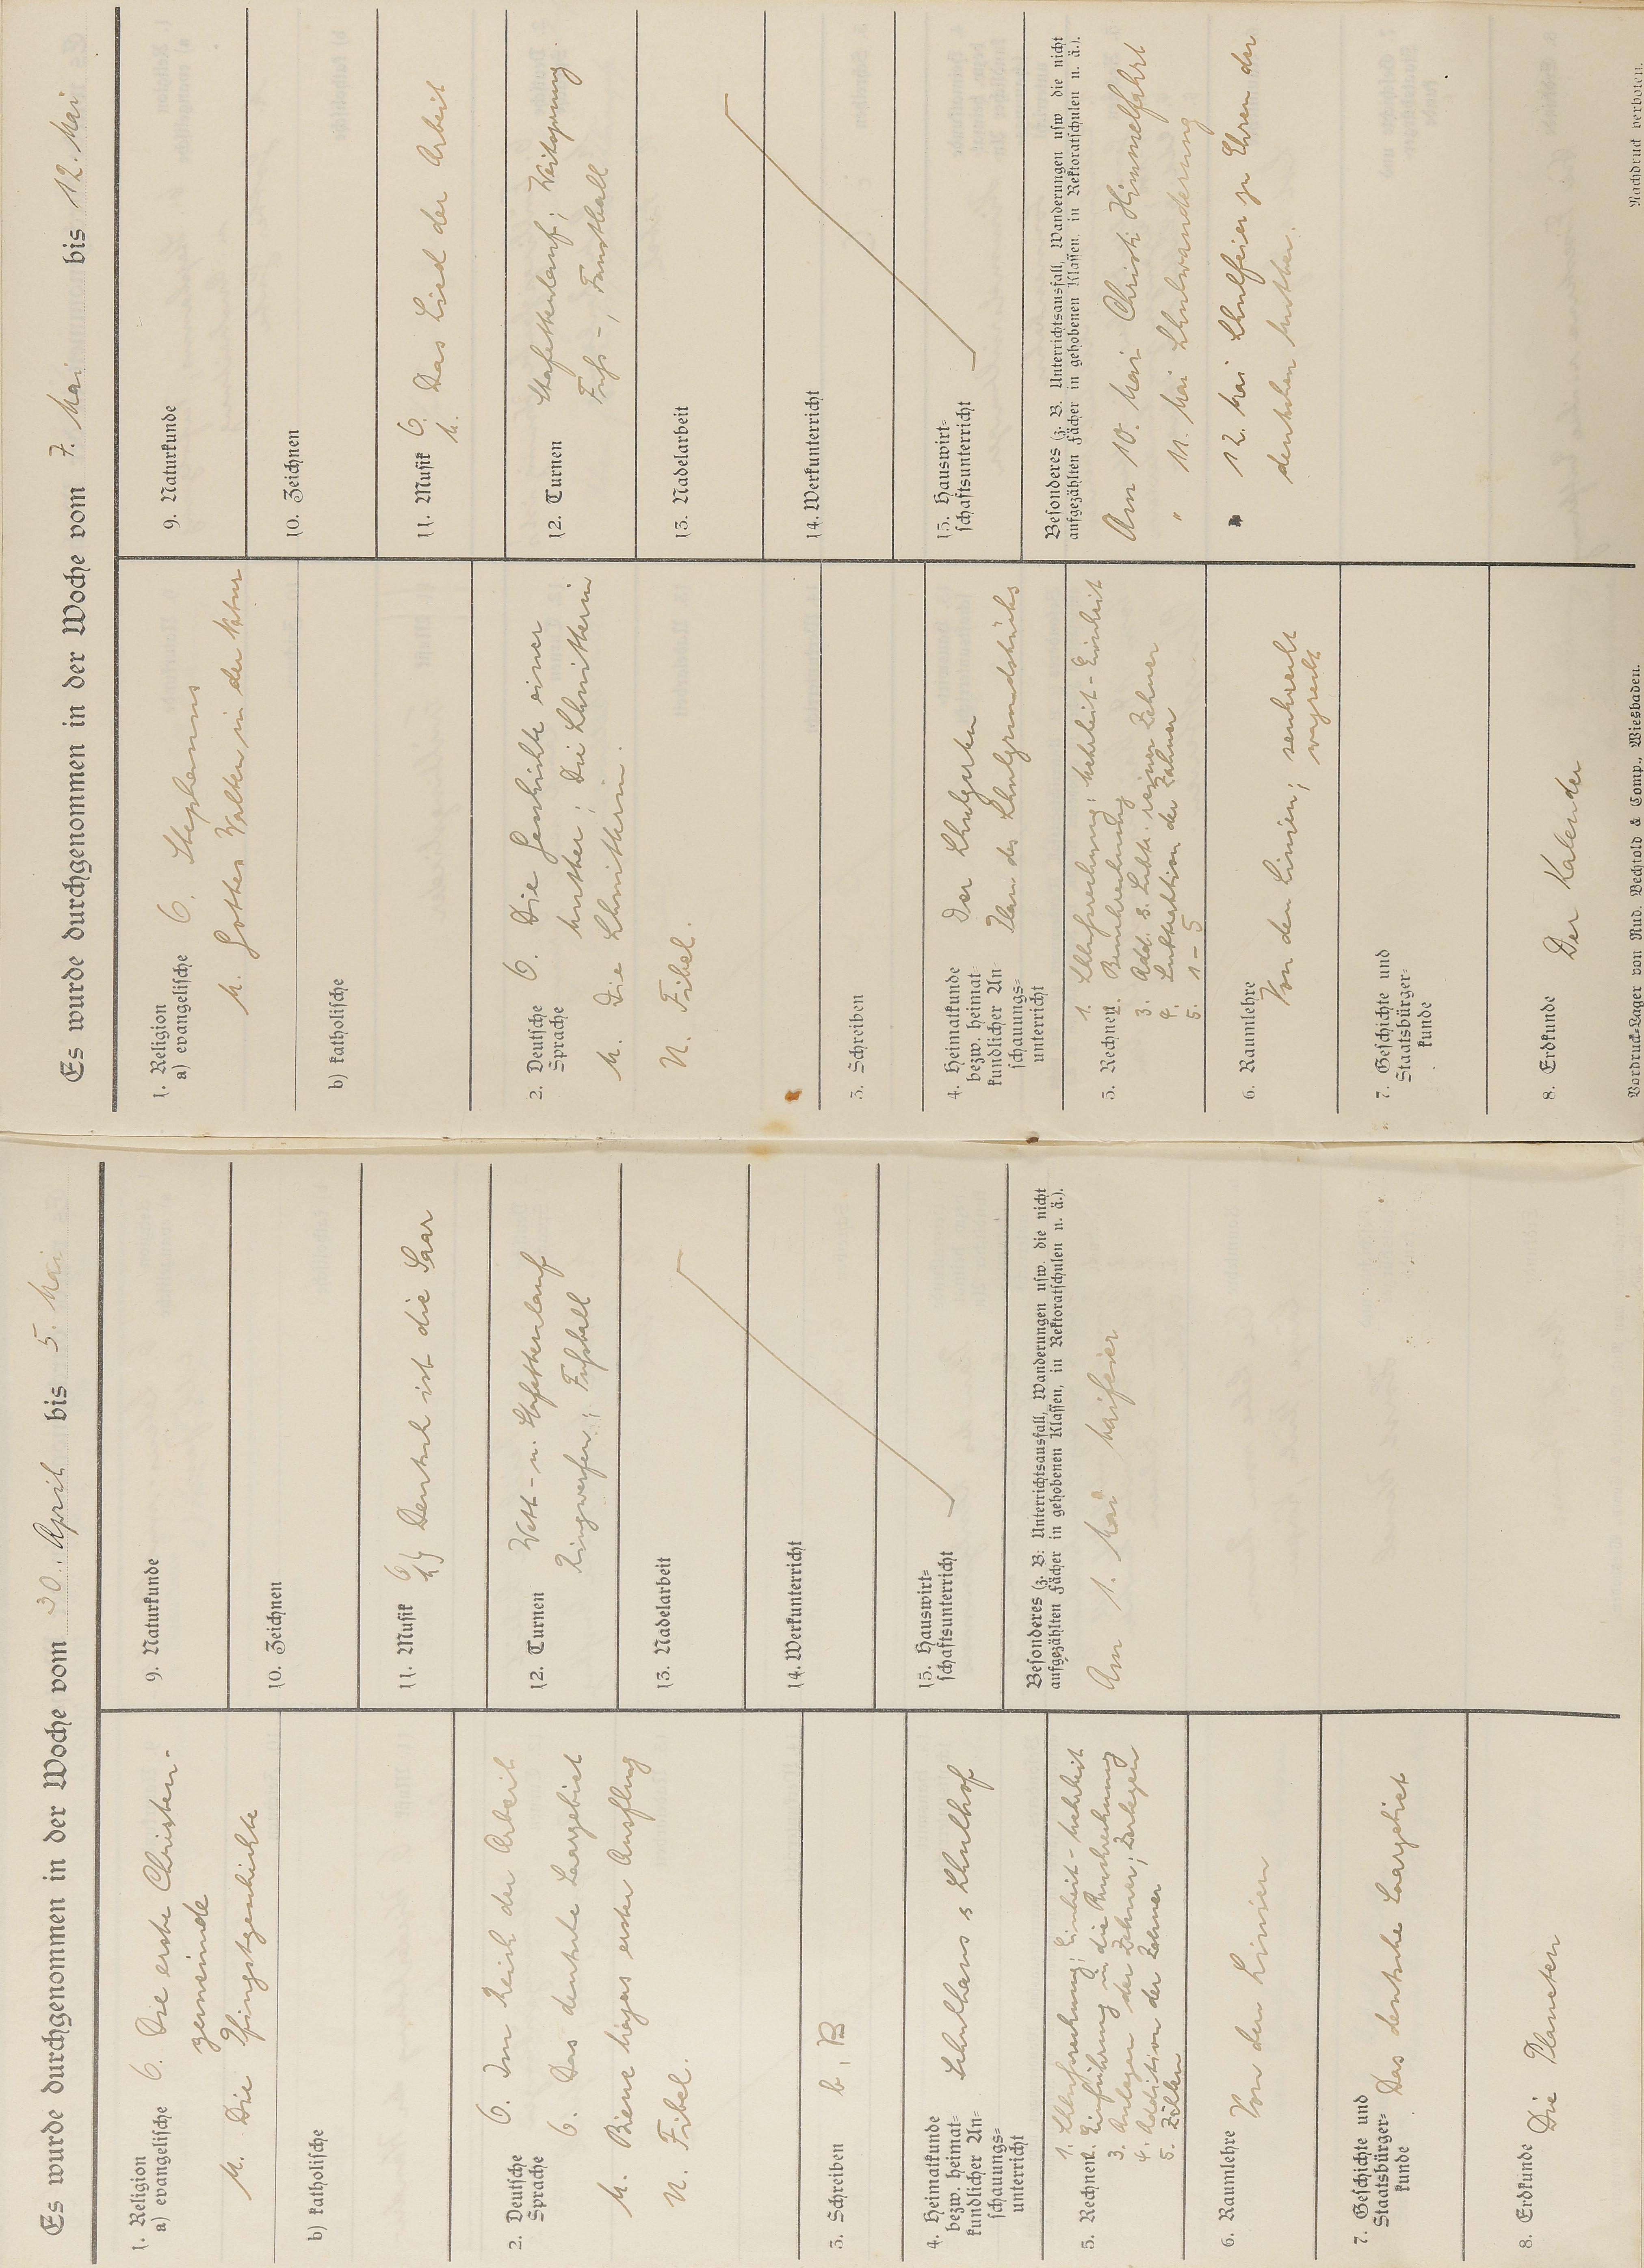 Es wurde durchgenommen in der Woche vom 30. April bis 5. Mai
1. Religion
a) evangelische O. Die erste Christen-
gemeinde
M. Die Pfingstgeschichte
b) katholische
2. Deutsche
Sprache
O. Im Reich der Arbeit
O. Das deutsche Saargebiet
M. Biene Majas erster Ausflug
U. Fibel.
3. Schreiben b, B
4. Heimatkunde
bezw. heimat-
kundlicher An-
schauungs-
unterricht
Schulhaus s Schulhof
5. Rechnen
1. Schlußrechnung; Einheit - Mehrheit
2. Einführung in die Bruchrechnung
3. Anlegen der Zehner; Zerlegen
4. Addition der Zehner
5. Zählen
6. Raumlehre Von den Linien
7. Geschichte und
Staatsbürger-
kunde
Das deutsche Saargebiet
8. Erdkunde Die Planeten
9. Naturkunde
10. Zeichnen
11. Musik O. M. Deutsch ist die Saar
12. Turnen Wett- u. Stafettenlauf
Ringwerfen; Fußball
13. Nadelarbeit
14. Werkunterricht
15. Hauswirt-
schaftsunterricht
Besonderes (z. B. Unterrichtsausfall, Wanderungen usw. die nicht
aufgezählten Fächer in gehobenen Klassen, in Rektoratschulen u. ä.).
Am 1. Mai Maifeier
Es wurde durchgenommen in der Woche vom 7. Mai bis 12. Mai
1. Religion
a) evangelische O. Stephanus
M. Gottes Walten in der Natur
b) katholische
2. Deutsche
Sprache
O. Die Geschichte einer
Mutter; Die Schnitterin
M. Die Schnitterin.
U. Fibel.
3. Schreiben
4. Heimatkunde
bezw. heimat-
kundlicher An-
schauungs-
unterricht
Der Schulgarten
Plan des Schulgrundstücks
5. Rechnen
1. Schlußrechnung; Mehrheit - Einheit
2. Bruchrechnung
3. Add. s. Subtr. reiner Zehner
4. Subtraktion der Zehner
5. 1 - 5
6. Raumlehre
Von den Linien; senkrecht
wagrecht
7. Geschichte und
Staatsbürger-
kunde
8. Erdkunde Der Kalender
Vordruck-Lager von Rud. Bechtold & Comp., Wiesbaden.
9. Naturkunde
10. Zeichnen
11. Musik O. M. Das Lied der Arbeit
12. Turnen Stafettenlauf; Weitsprung.
Fuß-, Faustball
13. Nadelarbeit
14. Werkunterricht
15. Hauswirt-
schaftsunterricht
Besonderes (z. B. Unterrichtsausfall, Wanderungen usw die nicht
aufgezählten Fächer in gehobenen Klassen, in Rektoratschulen u. ä.).
Am 10. Mai Christi Himmelfahrt
" 11. Mai Schulwanderung
" 12. Mai Schulfeier zu Ehren der
deutschen Mutter.
Nachdruck verboten.